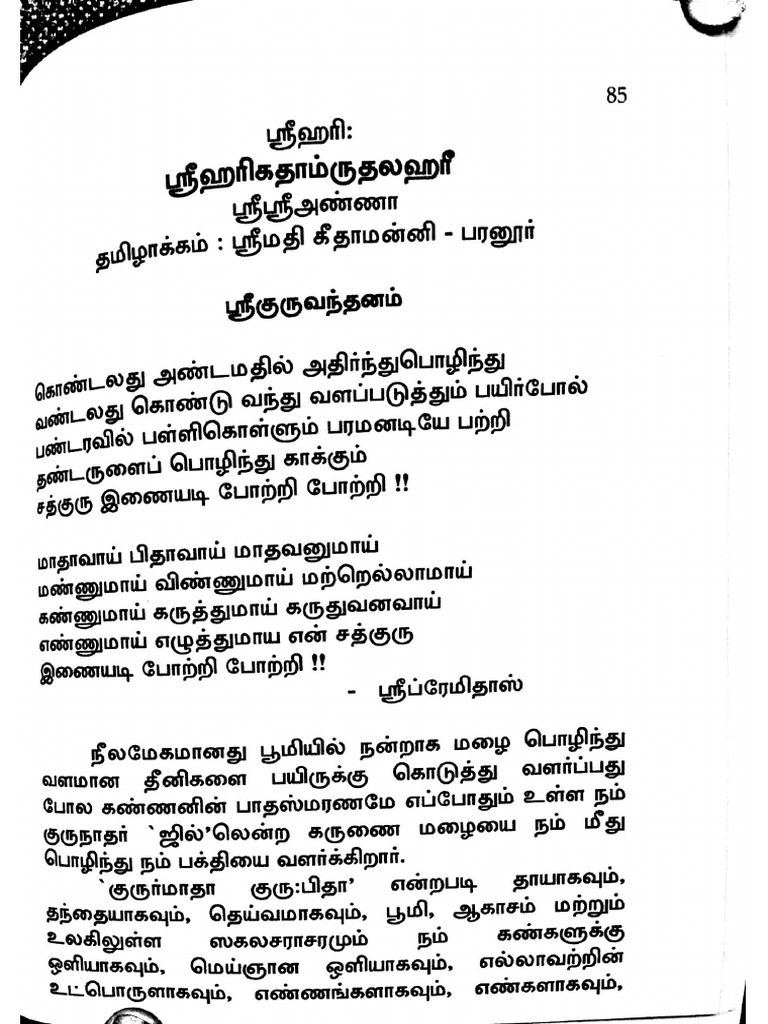 85
ஸ்ரீஹரி:
ஸ்ரீஹரிகதாம்ருதலஹரீ
ஸ்ரீஸ்ரீஅண்ணா
தமிழாக்கம் : ஸ்ரீமதி கீதாமன்னி - பரனூர்
ஸ்ரீகுருவந்தனம்
கொண்டலது அண்டமதில் அதிர்ந்துபொழிந்து
வண்டலது கொண்டு வந்து வளப்படுத்தும் பயிர்போல்
பண்டரவில் பள்ளிகொள்ளும் பரமனடியே பற்றி
தண்டருளைப் பொழிந்து காக்கும்
சத்குரு இணையடி போற்றி போற்றி !!
மாதாவாய் பிதாவாய் மாதவனுமாய்
மண்ணுமாய் விண்ணுமாய் மற்றெல்லாமாய்
கண்ணுமாய் கருத்துமாய் கருதுவனவாய்
எண்ணுமாய் எழுத்துமாய என் சத்குரு
இணையடி போற்றி போற்றி !!
- ஸ்ரீப்ரேமிதாஸ்
நீலமேகமானது பூமியில் நன்றாக மழை பொழிந்து
வளமான தீனிகளை பயிருக்கு கொடுத்து வளர்ப்பது
போல கண்ணனின் பாதஸ்மரணமே எப்போதும் உள்ள நம்
குருநாதர் `ஜில்'லென்ற கருணை மழையை நம் மீது
பொழிந்து நம் பக்தியை வளர்க்கிறார்.
`குருர்மாதா குரு:பிதா' என்றபடி தாயாகவும்,
தந்தையாகவும், தெய்வமாகவும், பூமி, ஆகாசம் மற்றும்
உலகிலுள்ள ஸகலசராசரமும் நம் கண்களுக்கு
ஒளியாகவும், மெய்ஞான ஒளியாகவும், எல்லாவற்றின்
உட்பொருளாகவும், எண்ணங்களாகவும், எண்களாகவும்,